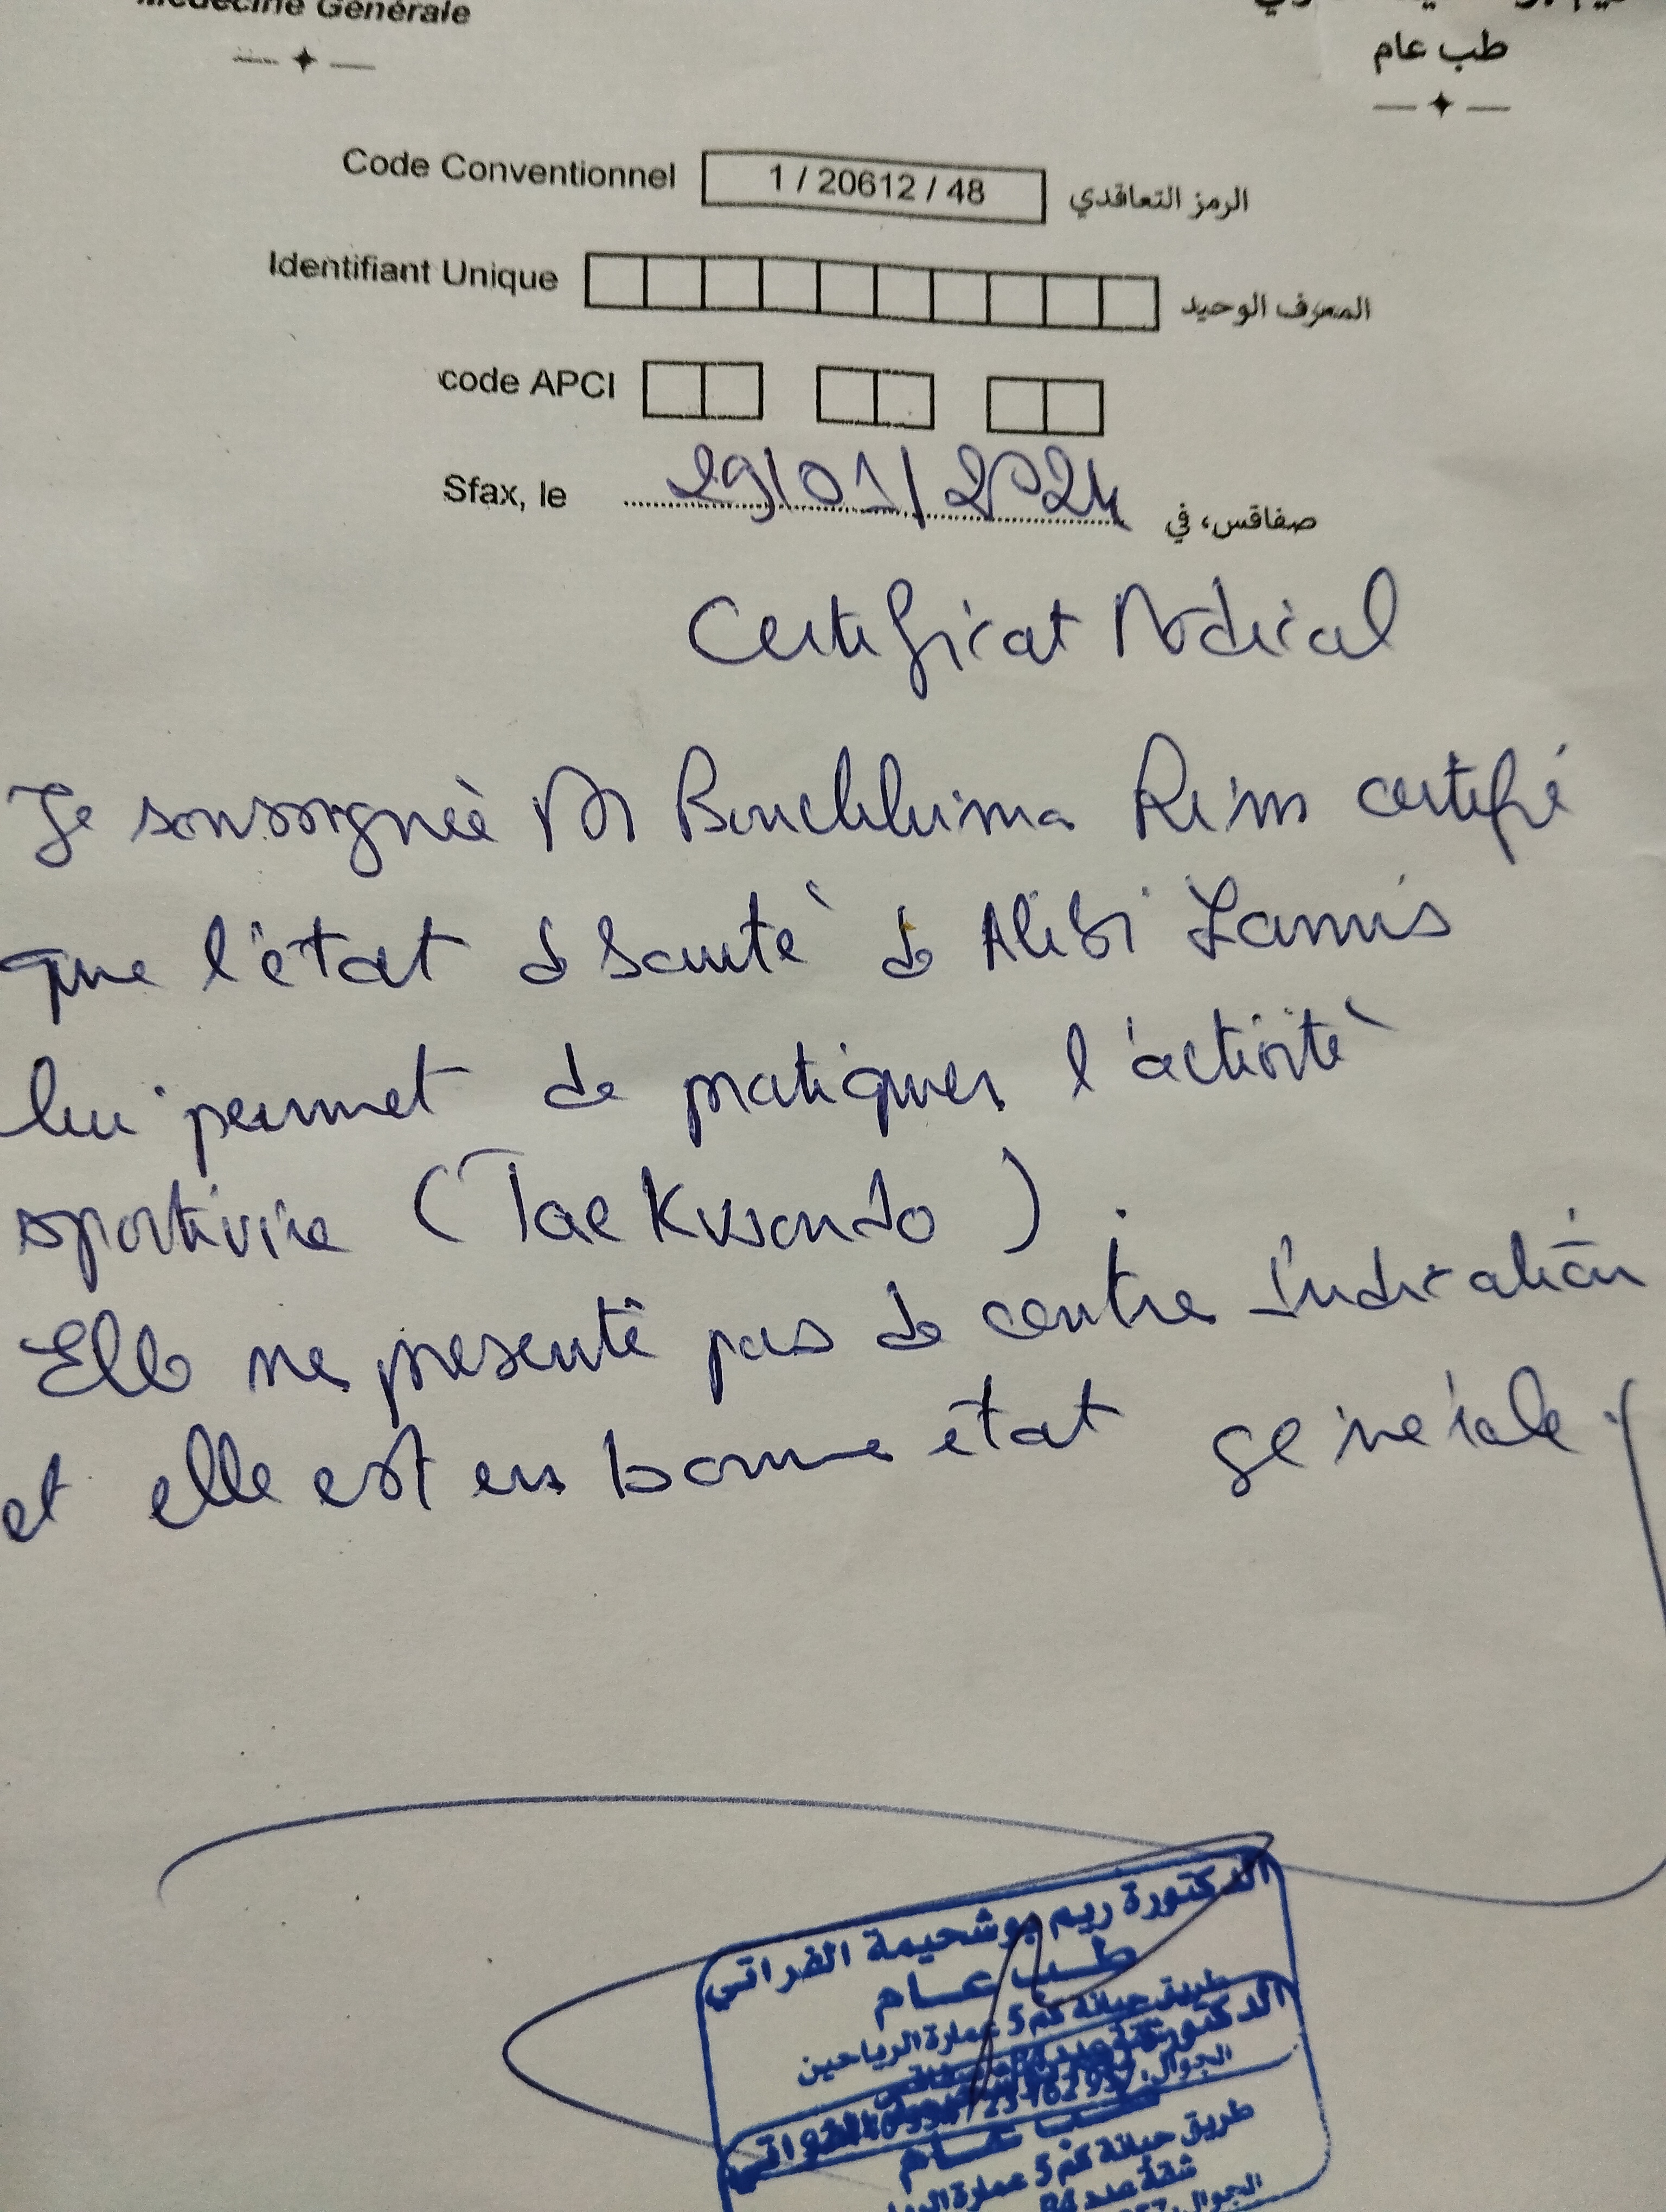 Médecine Générale
طب عام
Code Conventionnel 1 / 20612 / 48 الرمز التعاقدي
Identifiant Unique المعرف الوحيد
code APCI
Sfax, le 29/01/2024 صفاقس، في
Certificat Médical
Je soussignée Dr Bouchhima Rim certifié
que l'état de santé de Alibi Lamis
lui permet de pratiquer l'activité
sportivire (Taekwondo).
Elle ne présente pas de contre indication
et elle est en bonne état générale.
الدكتورة ريم بوشحيمة الفراتي
طب عام
طريق حبانة كم 5 عمارة الرياحين
طريق حبانة كم 5 عمارة
شقة عدد B4
الجوال: